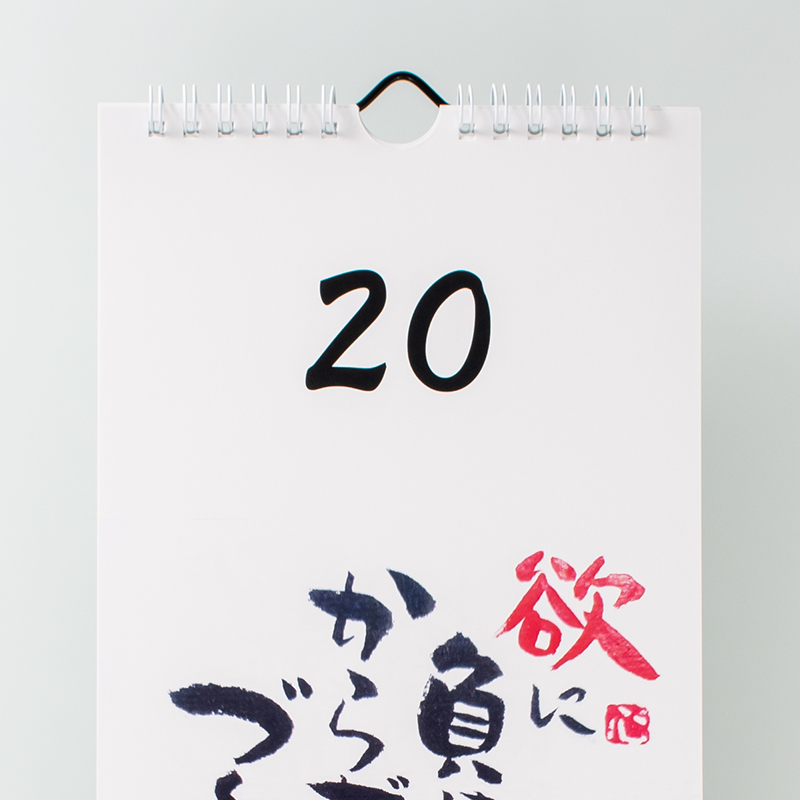 20
欲に
負け
からだ
づく